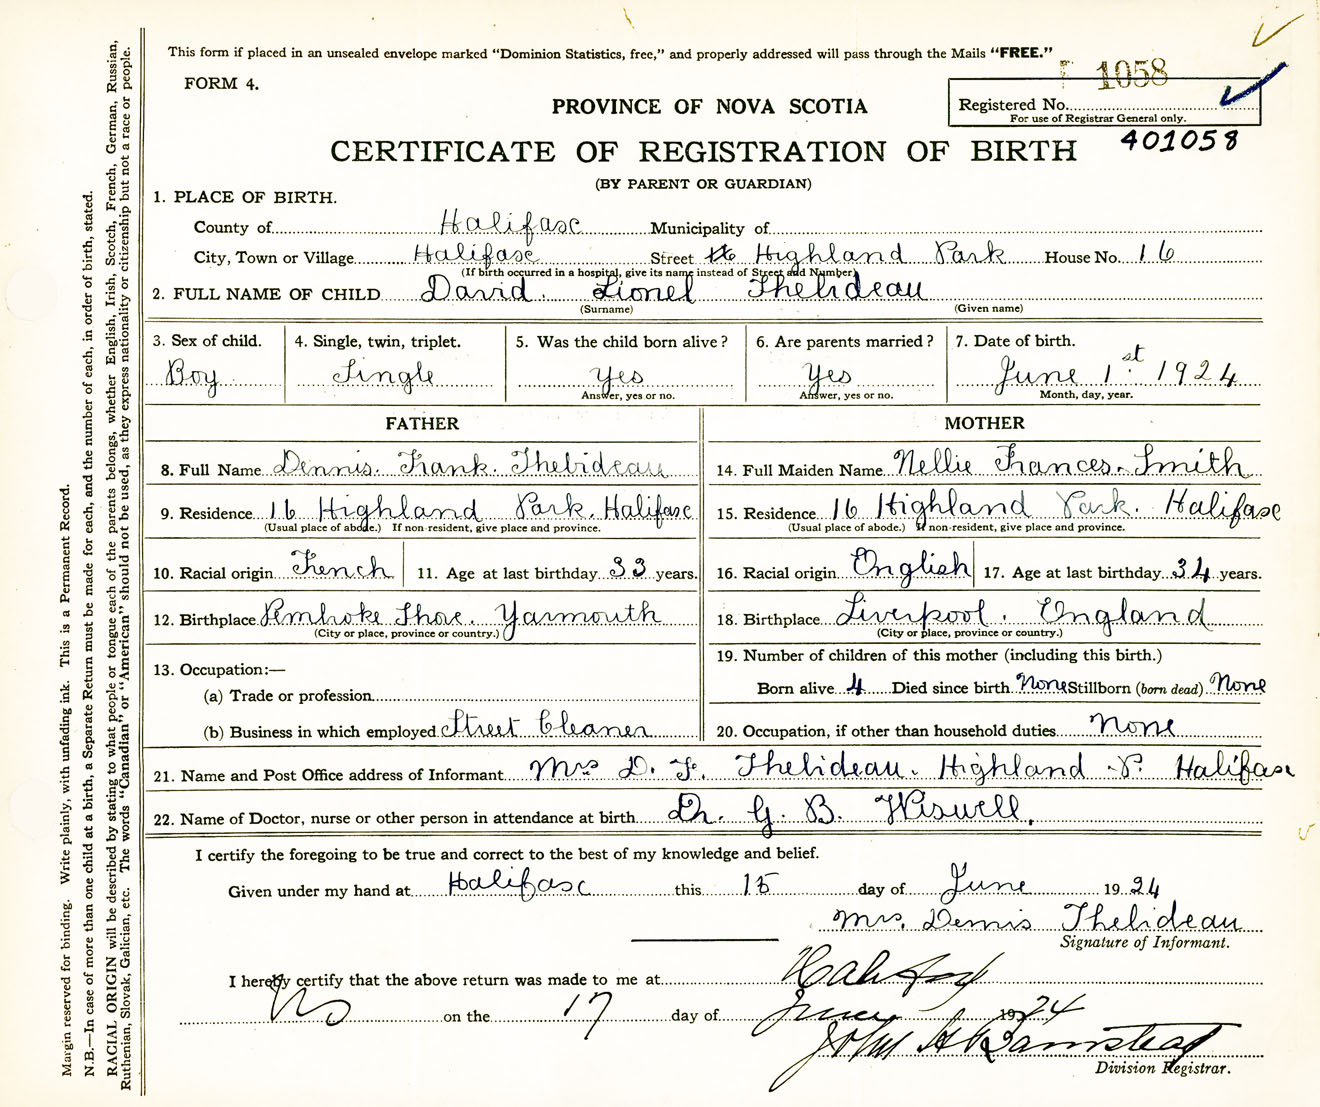 This form if placed in an unsealed envelope marked "Dominion Statistics, free," and properly addressed will pass through the Mails "FREE."
FORM 4.
1058
PROVINCE OF NOVA SCOTIA
Registered No.
For use of Registrar General only.
CERTIFICATE OF REGISTRATION OF BIRTH
401058
(BY PARENT OR GUARDIAN)
1. PLACE OF BIRTH.
County of Halifax Municipality of
City, Town or Village Halifax Street Highland Park House No. 16
(If birth occurred in a hospital, give its name instead of Street and Number)
2. FULL NAME OF CHILD David. Lionel Thelideau
(Surname) (Given name)
3. Sex of child. 4. Single, twin, triplet. 5. Was the child born alive? 6. Are parents married? 7. Date of birth.
Boy Single Yes Yes June 1st 1924
Answer, yes or no. Answer, yes or no. Month, day, year.
FATHER MOTHER
8. Full Name Dennis. Frank. Thebideau 14. Full Maiden Name Nellie Frances. Smith
9. Residence 16 Highland Park. Halifax 15. Residence 16 Highland Park. Halifax
(Usual place of abode.) If non-resident, give place and province. (Usual place of abode.) If non-resident, give place and province.
10. Racial origin French 11. Age at last birthday 33 years. 16. Racial origin English 17. Age at last birthday 34 years.
12. Birthplace Pembroke Shore. Yarmouth 18. Birthplace Liverpool. England
(City or place, province or country.) (City or place, province or country.)
13. Occupation:—
(a) Trade or profession
(b) Business in which employed Street Cleaner
19. Number of children of this mother (including this birth.)
Born alive 4 Died since birth None Stillborn (born dead) None
20. Occupation, if other than household duties None
21. Name and Post Office address of Informant Mrs D. F. Thelideau. Highland P. Halifax
22. Name of Doctor, nurse or other person in attendance at birth Dr. G. B. Wiswell.
I certify the foregoing to be true and correct to the best of my knowledge and belief.
Given under my hand at Halifax this 15 day of June 1924
Mrs. Dennis Thelideau
Signature of Informant.
I hereby certify that the above return was made to me at Halifax
NS on the 17 day of June 1924
John H Barnstead
Division Registrar.
Margin reserved for binding. Write plainly, with unfading ink. This is a Permanent Record.
N.B.—In case of more than one child at a birth, a Separate Return must be made for each, and the number of each, in order of birth, stated.
RACIAL ORIGIN will be described by stating to what people or tongue each of the parents belongs, whether English, Irish, Scotch, French, German, Russian,
Ruthenian, Slovak, Galician, etc. The words "Canadian" or "American" should not be used, as they express nationality or citizenship but not a race or people.